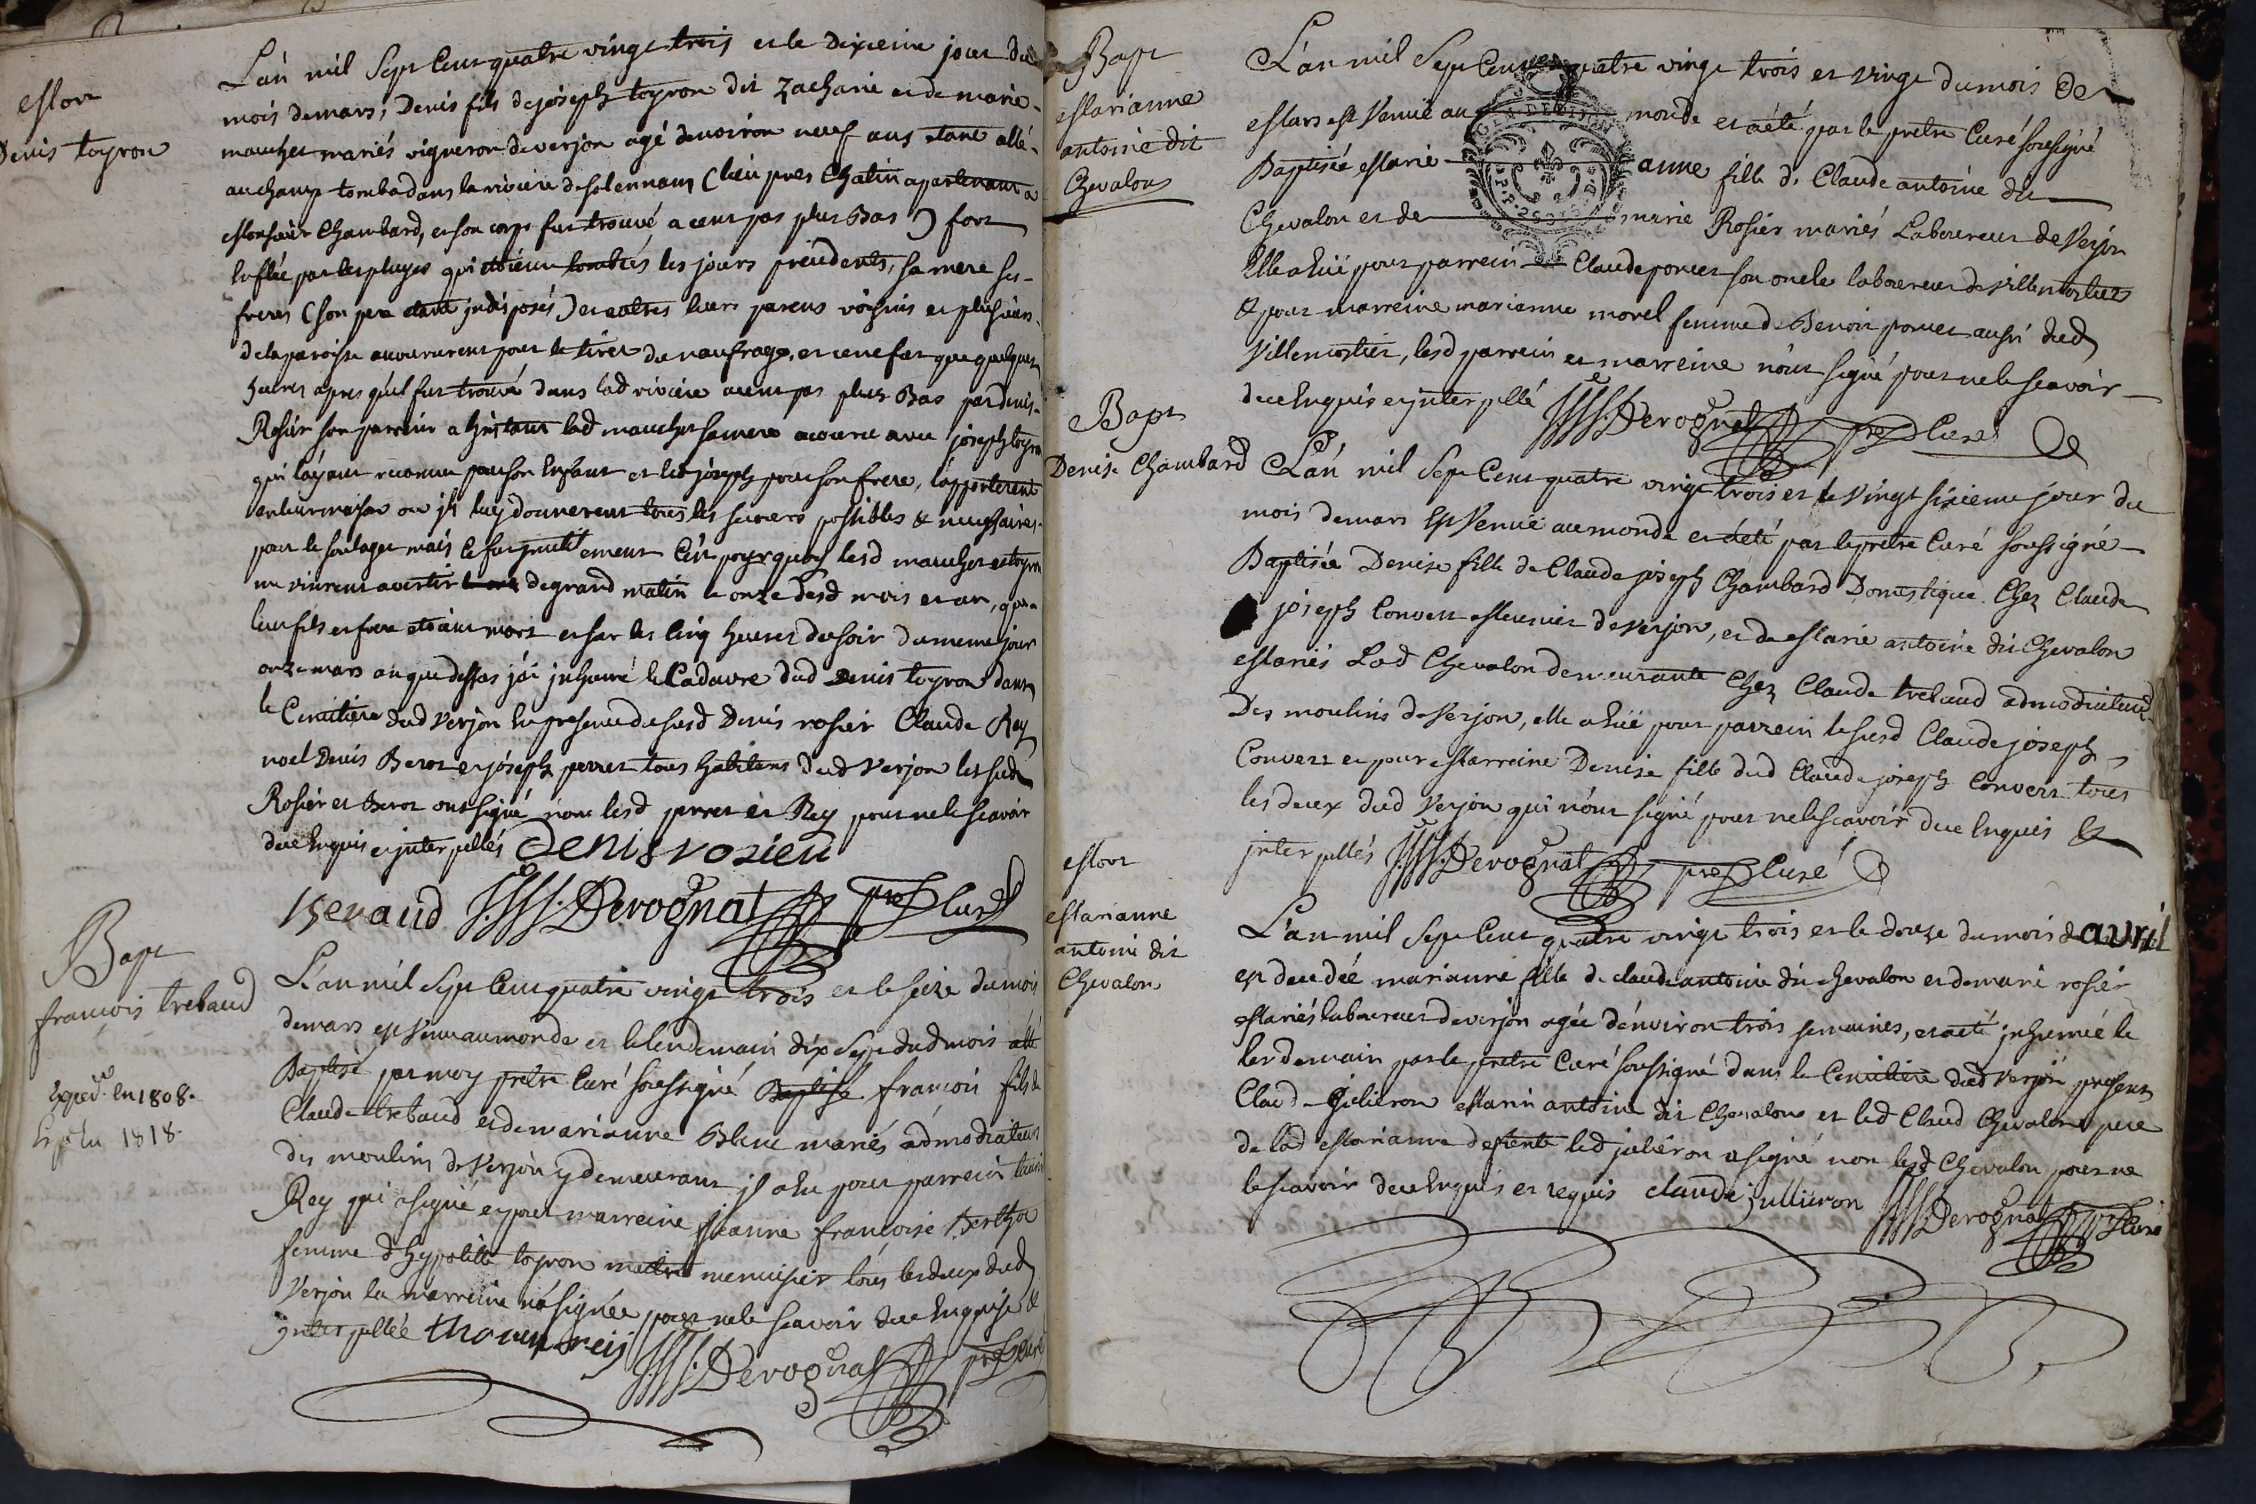 Mort
Denis toyron
L'an mil Sept Cent quatre vingt trois et le dixieme jour du
mois de mars, Denis fils de joseph toyron dit Zacharie et de marie
mauchet mariés vigneron de verjon agé denviron neuf ans etant allé
au champ tomba dans la riviere de solennam (lieu pres Chatin apartenant a
Monsieur Chambard, et son corps fut trouvé a cent pas plus Bas) fort
Enflée par les pluyes qui etoient tombées les jours precedents, sa mere ses
freres (son pere etant indisposés) et autres leurs parens voisins et plusieurs
de la paroisse accoururent pour le tirer du naufrage, et ce ne fut que quelques
heures apres quil fut trouvé dans lad riviere a cent pas plus Bas par denis
Rosier son parrein a l'instant lad mauchet sa mere acourut avec joseph toyron
qui layant reconnu pour son Enfant et led joseph pour son frere, l'apporterent
en leur maison ou ils luy donnerent tous les secours possibles & necessaires
pour le soulager mais ce fut inutilement C'est pourquoy lesd mauchet et toyron
me vinrent avertir de grand matin le onze desd mois et an, que
leur fils et frere etoit mort et sur les Cinq heures du soir du meme jour
onze mars an que dessus j'ai inhumé le Cadavre dud Denis toyron dans
le Cimitiere dud verjon En presence du susd Denis rosier Claude Rey
noel Denis Berot et joseph perret tous habitans dud verjon les susd
Rosier et Berot ont signé non lesd perret et Rey pour ne le scavoir
de ce Enquis et interpellés Denis rosier
Beraud J.J.J. Derognat pre Curé
Bapt
françois trebaud
Exped. en 1808.
Exp en 1818.
L'an mil Sept Cent quatre vingt trois et le seize du mois
de mars est Venu au monde et le lendemain dix Sept dud mois a été
Baptisé par moy pretre Curé soussigné Baptisé françois fils de
Claude trebaud et de marianne Blanc mariés admodiateur
des moulins de Verjon y demeurant il a Eu pour parrein
Rey qui a signé et pour marreine jeanne françoise Berthod
femme d'hypolitte toyron maitre menuisier tous les deux dud
Verjon la marreine n'a signée pour ne le scavoir de ce Enquise &
interpellée thomas reij J.J.J. Derognat pre Curé
Bapt
Marianne
antoine dit
Chevalon
L'an mil Sept Cent quatre vingt trois et vingt du mois De
Mars est Venue au monde et a été par le pretre Curé soussigné
Baptisée Marie anne fille de Claude antoine dit
Chevalon et de marie Rosier mariés Laboureur de Verjon
Elle a Eüe pour parrein Claude poncet son oncle laboureur de villemotier
& pour marreine marianne morel femme de Benoit poncet aussi dud
Villemotier, lesd parrein et marreine n'ont signé pour ne le scavoir
de ce Enquis et interpellé J.J.J. Derognat pre Curé
Bapt
Denise Chambard
L'an mil Sept Cent quatre vingt trois et le vingt sixieme jour du
mois de mars Est Venue au monde et a été par le pretre Curé soussigné
Baptisée Denise fille de Claude joseph Chambard Domestique Chez Claude
joseph Convert Meunier de verjon, et de Marie antoine dit Chevalon
Mariés Lad Chevalon demeurante Chez Claude trebaud admodiateur
Des moulins de Verjon, elle a Eüe pour parrein le susd Claude joseph
Convert et pour Marreine Denise fille dud Claude joseph Convert tous
les deux dud Verjon qui n'ont signé pour ne le scavoir de ce Enquis &
interpellés J.J.J. Derognat pre Curé
Mort
Marianne
antoine dit
Chevalon
L'an mil Sept Cent quatre vingt trois et le douze du mois d'avril
est decedée marianne fille de claude antoine dit chevalon et de marie rosier
Mariés laboureur de verjon agée d'environ trois semaines, et a été inhumée le
lendemain par le pretre Curé soussigné dans le Cimitiere dud Verjon, presents
Claud Gelieron Marin antoine dit Chevalon et led Claud Chevalon pere
de lad Marianne defunte led julieron a signé non lesd Chevalon pour ne
le scavoir de ce Enquis et requis claude jullieron J.J.J. Derognat pre Curé